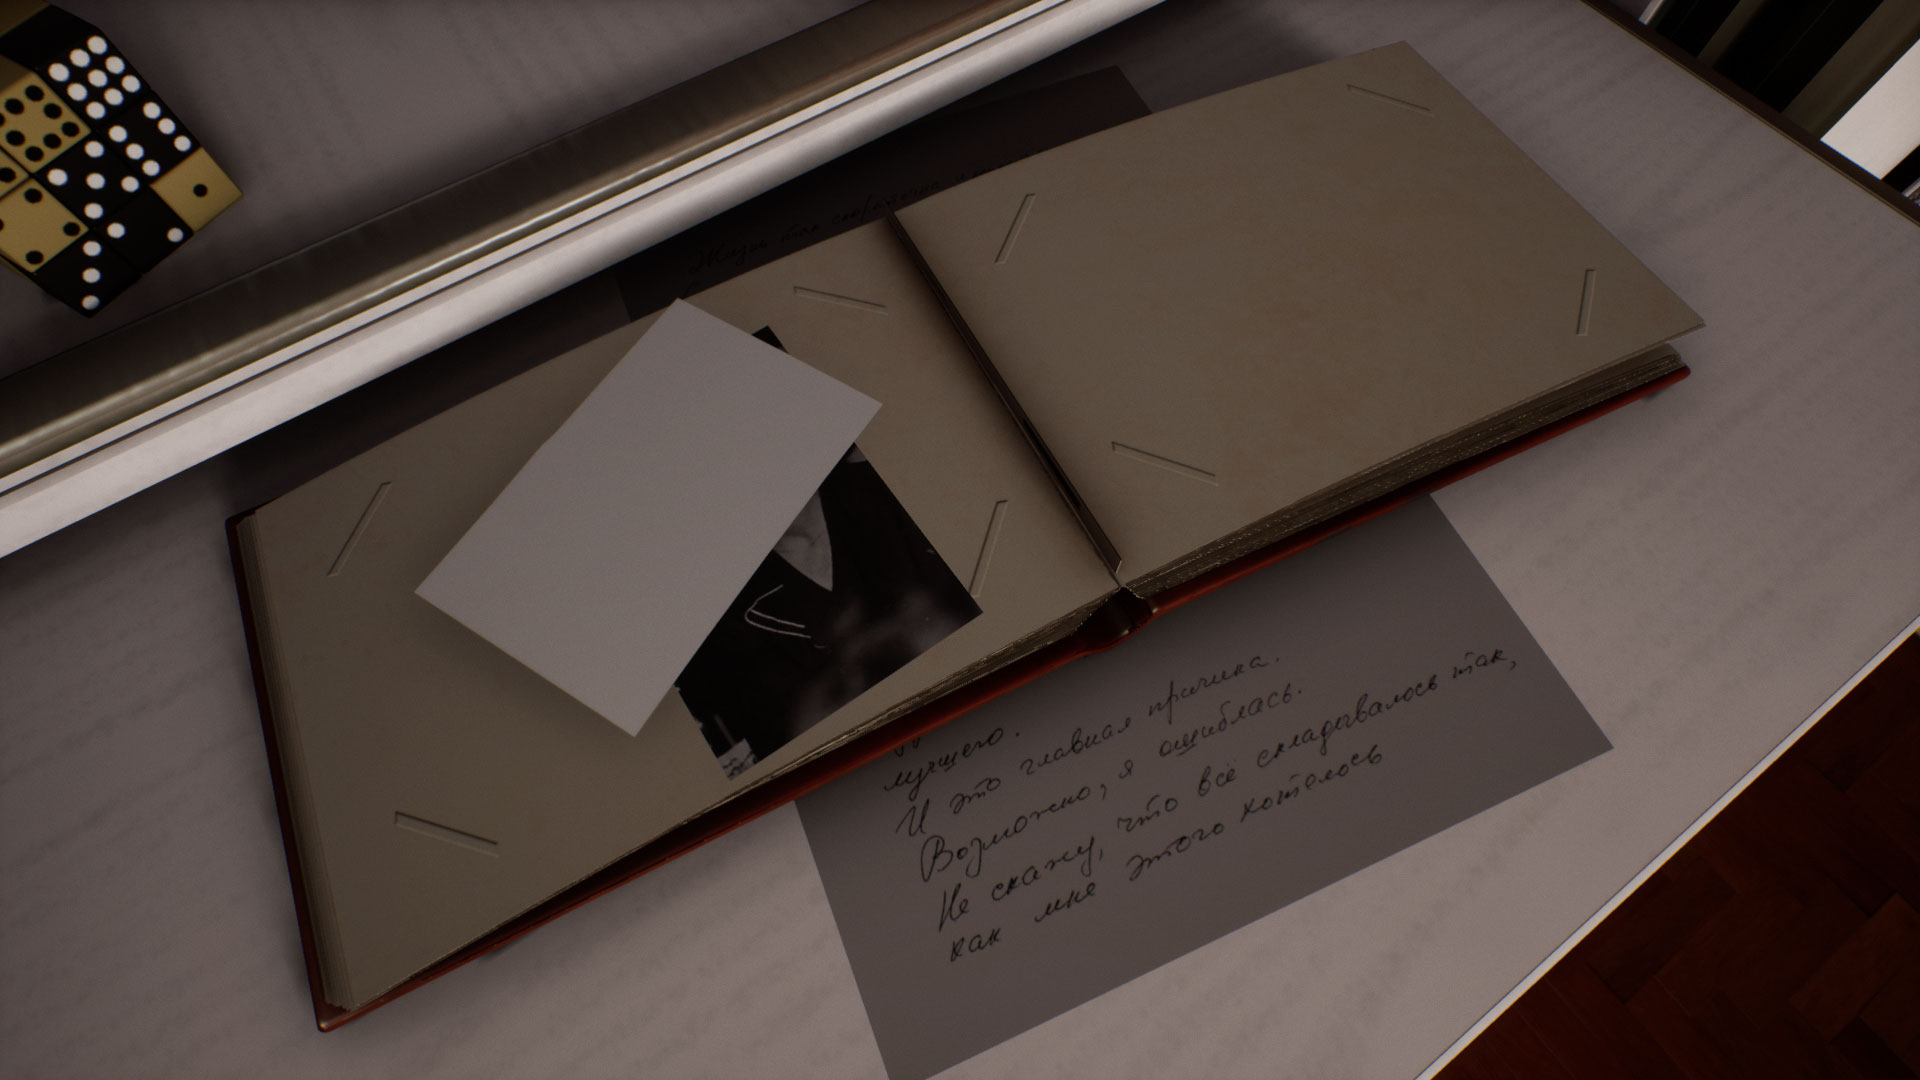 Жизнь так
лучшего.
И это главная причина.
Возможно, я ошиблась.
Не скажу, что всё складывалось так,
как мне этого хотелось